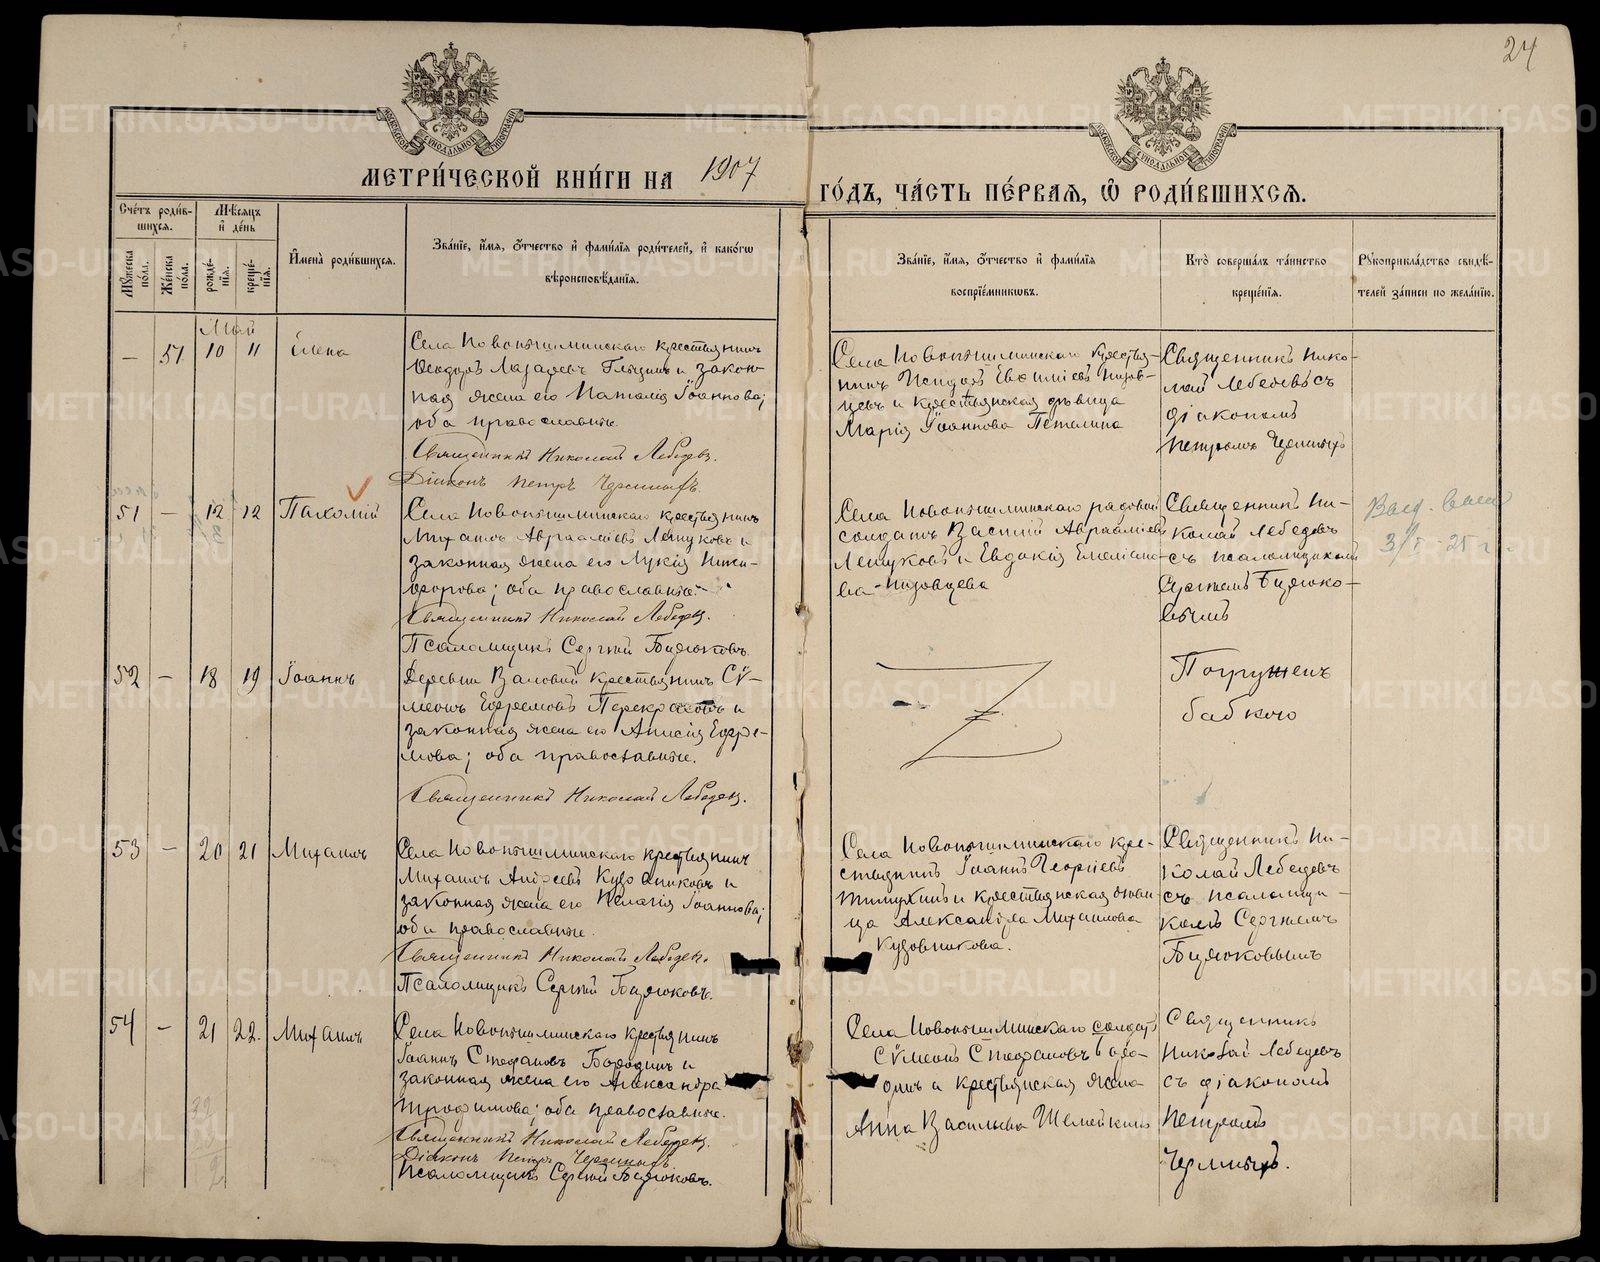 24
МЕТРИ́ЧЕСКОЙ КНИ́ГИ НА 1907 ГО́ДЪ, ЧА́СТЬ ПЕ́РВАЯ, Ѡ РОДИ́ВШИХСЯ.
Сче́тъ роди́в-
шихся.
Мꙋжеска по́ла.
Же́нска по́ла.
Мѣ́сяцъ и҆ де́нь
рожде́-нїя.
креще́-нїя.
И҆мена̀ роди́вшихся.
Зва́нїе, и҆́мя, ѻ҆́тчество и҆ фами́лїя роди́телей, и҆ како́гѡ
вѣроисповѣ́данїя.
Зва́нїе, и҆́мя, ѻ҆́тчество и҆ фами́лїя
воспрїе́мникѡвъ.
Кто̀ соверша́лъ та́инство
креще́нїя.
Рꙋкоприкла́дство свидѣ́-
телей за́писи по жела́нїю.
Май
— 51 10 11 Елена
Села Новопышминскаго крестьянинъ
Ѳеодоръ Лазаревъ и закон-
ная жена его Наталія Іоаннова;
оба православные.
Священникъ Николай Лебедевъ.
Діаконъ Петръ Черемныхъ.
Села Новопышминскаго крестья-
нинъ Исидоръ Евѳиміевъ Низов-
цевъ и крестьянская дѣвица
Марія Іоаннова Петелина
Священникъ Нико-
лай Лебедевъ съ
діакономъ
Петромъ Черемныхъ
51 — 12 12 Пахомій
Села Новопышминскаго крестьянинъ
Михаилъ Авраамієвъ Лепуковъ и
законная жена его Лукія Ники-
форова; оба православные.
Священникъ Николай Лебедевъ.
Псаломщикъ Сергій Бирюковъ.
Села Новопышминскаго рядовой
солдатъ Василій Авраамієвъ
Лепуковъ и Евдокія Емеліано-
ва Низовцева
Священникъ Ни-
колай Лебедевъ
съ псаломщикомъ
Сергіемъ Бирюко-
вымъ
Выд. 
3/I - 25 г.
52 — 18 19 Іоаннъ
Деревни Валовой крестьянинъ Сѵ-
меонъ Ефремовъ и
законная жена его Анисія Ефре-
мова; оба православные.
Священникъ Николай Лебедевъ.
Погруженъ
бабкою
53 — 20 21 Михаилъ
Села Новопышминскаго крестьянинъ
Михаилъ Андреевъ Кузовниковъ и
законная жена его Пелагія Іоаннова;
оба православные.
Священникъ Николай Лебедевъ.
Псаломщикъ Сергій Бирюковъ.
Села Новопышминскаго кре-
стьянинъ Іоаннъ Георгіевъ
и крестьянская дѣви-
ца Александра Михаилова
Кузовникова.
Священникъ Ни-
колай Лебедевъ
съ псаломщи-
комъ Сергіемъ
Бирюковымъ
54 — 21 22. Михаилъ
Села Новопышминскаго крестьянинъ
Іоаннъ Стефановъ Бородинъ и
законная жена его Александра
Трофимова; оба православные.
Священникъ Николай Лебедевъ.
Діаконъ Петръ Черемныхъ.
Псаломщикъ Сергій Бирюковъ.
Села Новопышминскаго солдатъ
Сѵмеонъ Стефановъ Боро-
динъ и крестьянская жена
Анна Васильева
Священникъ
Николай Лебедевъ
съ діакономъ
Петромъ
Черемныхъ.